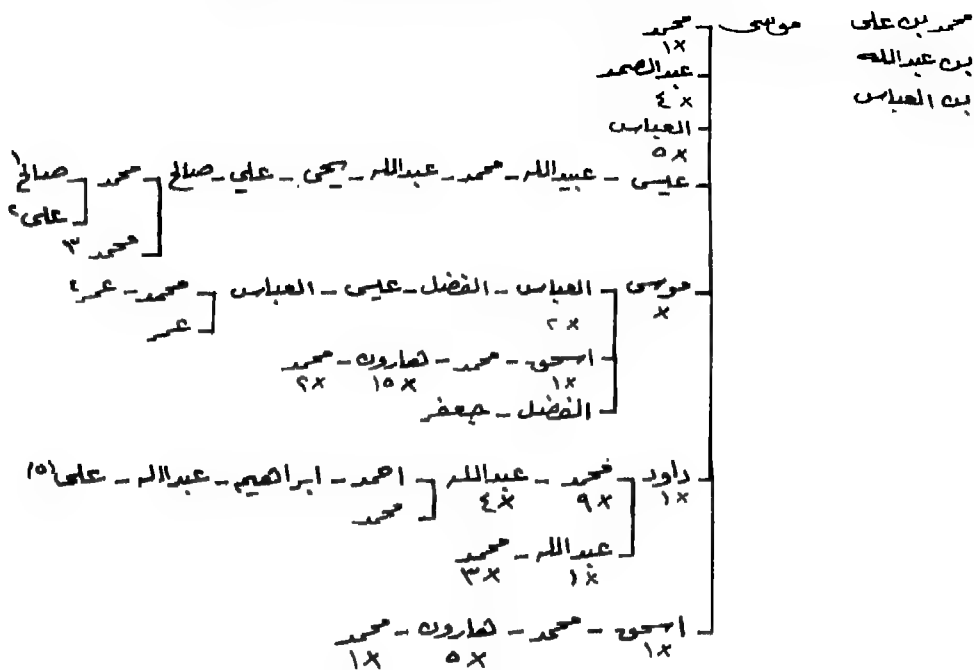 محمد بن على موسى محمد
بن عبدالله ×١
بن العباس
عبدالصمد
×٤
العباس
×٥
عيسى - عبيدالله - محمد - عبدالله - يحى - علي - صالح محمد صالح ١
على ٢
محمد ٣
موسى العباس - الفضل - عيسى - العباس محمد - عمر ٤
× ×٢
عمر
اسحق - محمد - هارون - محمد
×١ ×١٥ ×٢
الفضل - جعفر
داود محمد - عبدالله احمد - ابراهيم - عبدالله - على (٥)
×١ ×٩ ×٤
محمد
عبدالله - محمد
×١ ×٣
اسحق - محمد - هارون - محمد
×١ ×٥ ×١